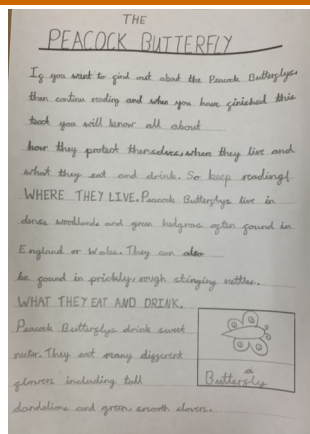 THE
PEACOCK BUTTERFLY
If you want to find out about the Peacock Butterflys
then continue reading and when you have finished this
text you will know all about
how they protect themselves, where they live and
what they eat and drink. So keep reading!
WHERE THEY LIVE. Peacock Butterflys live in
dense woodlands and green hedgrows often found in
England or Wales. They can also
be found in prickly, rough stinging nettles.
WHAT THEY EAT AND DRINK.
Peacock Butterflys drink sweet
nectar. They eat many different
flowers including tall
dandelions and green, smooth clovers.
a
Butterfly